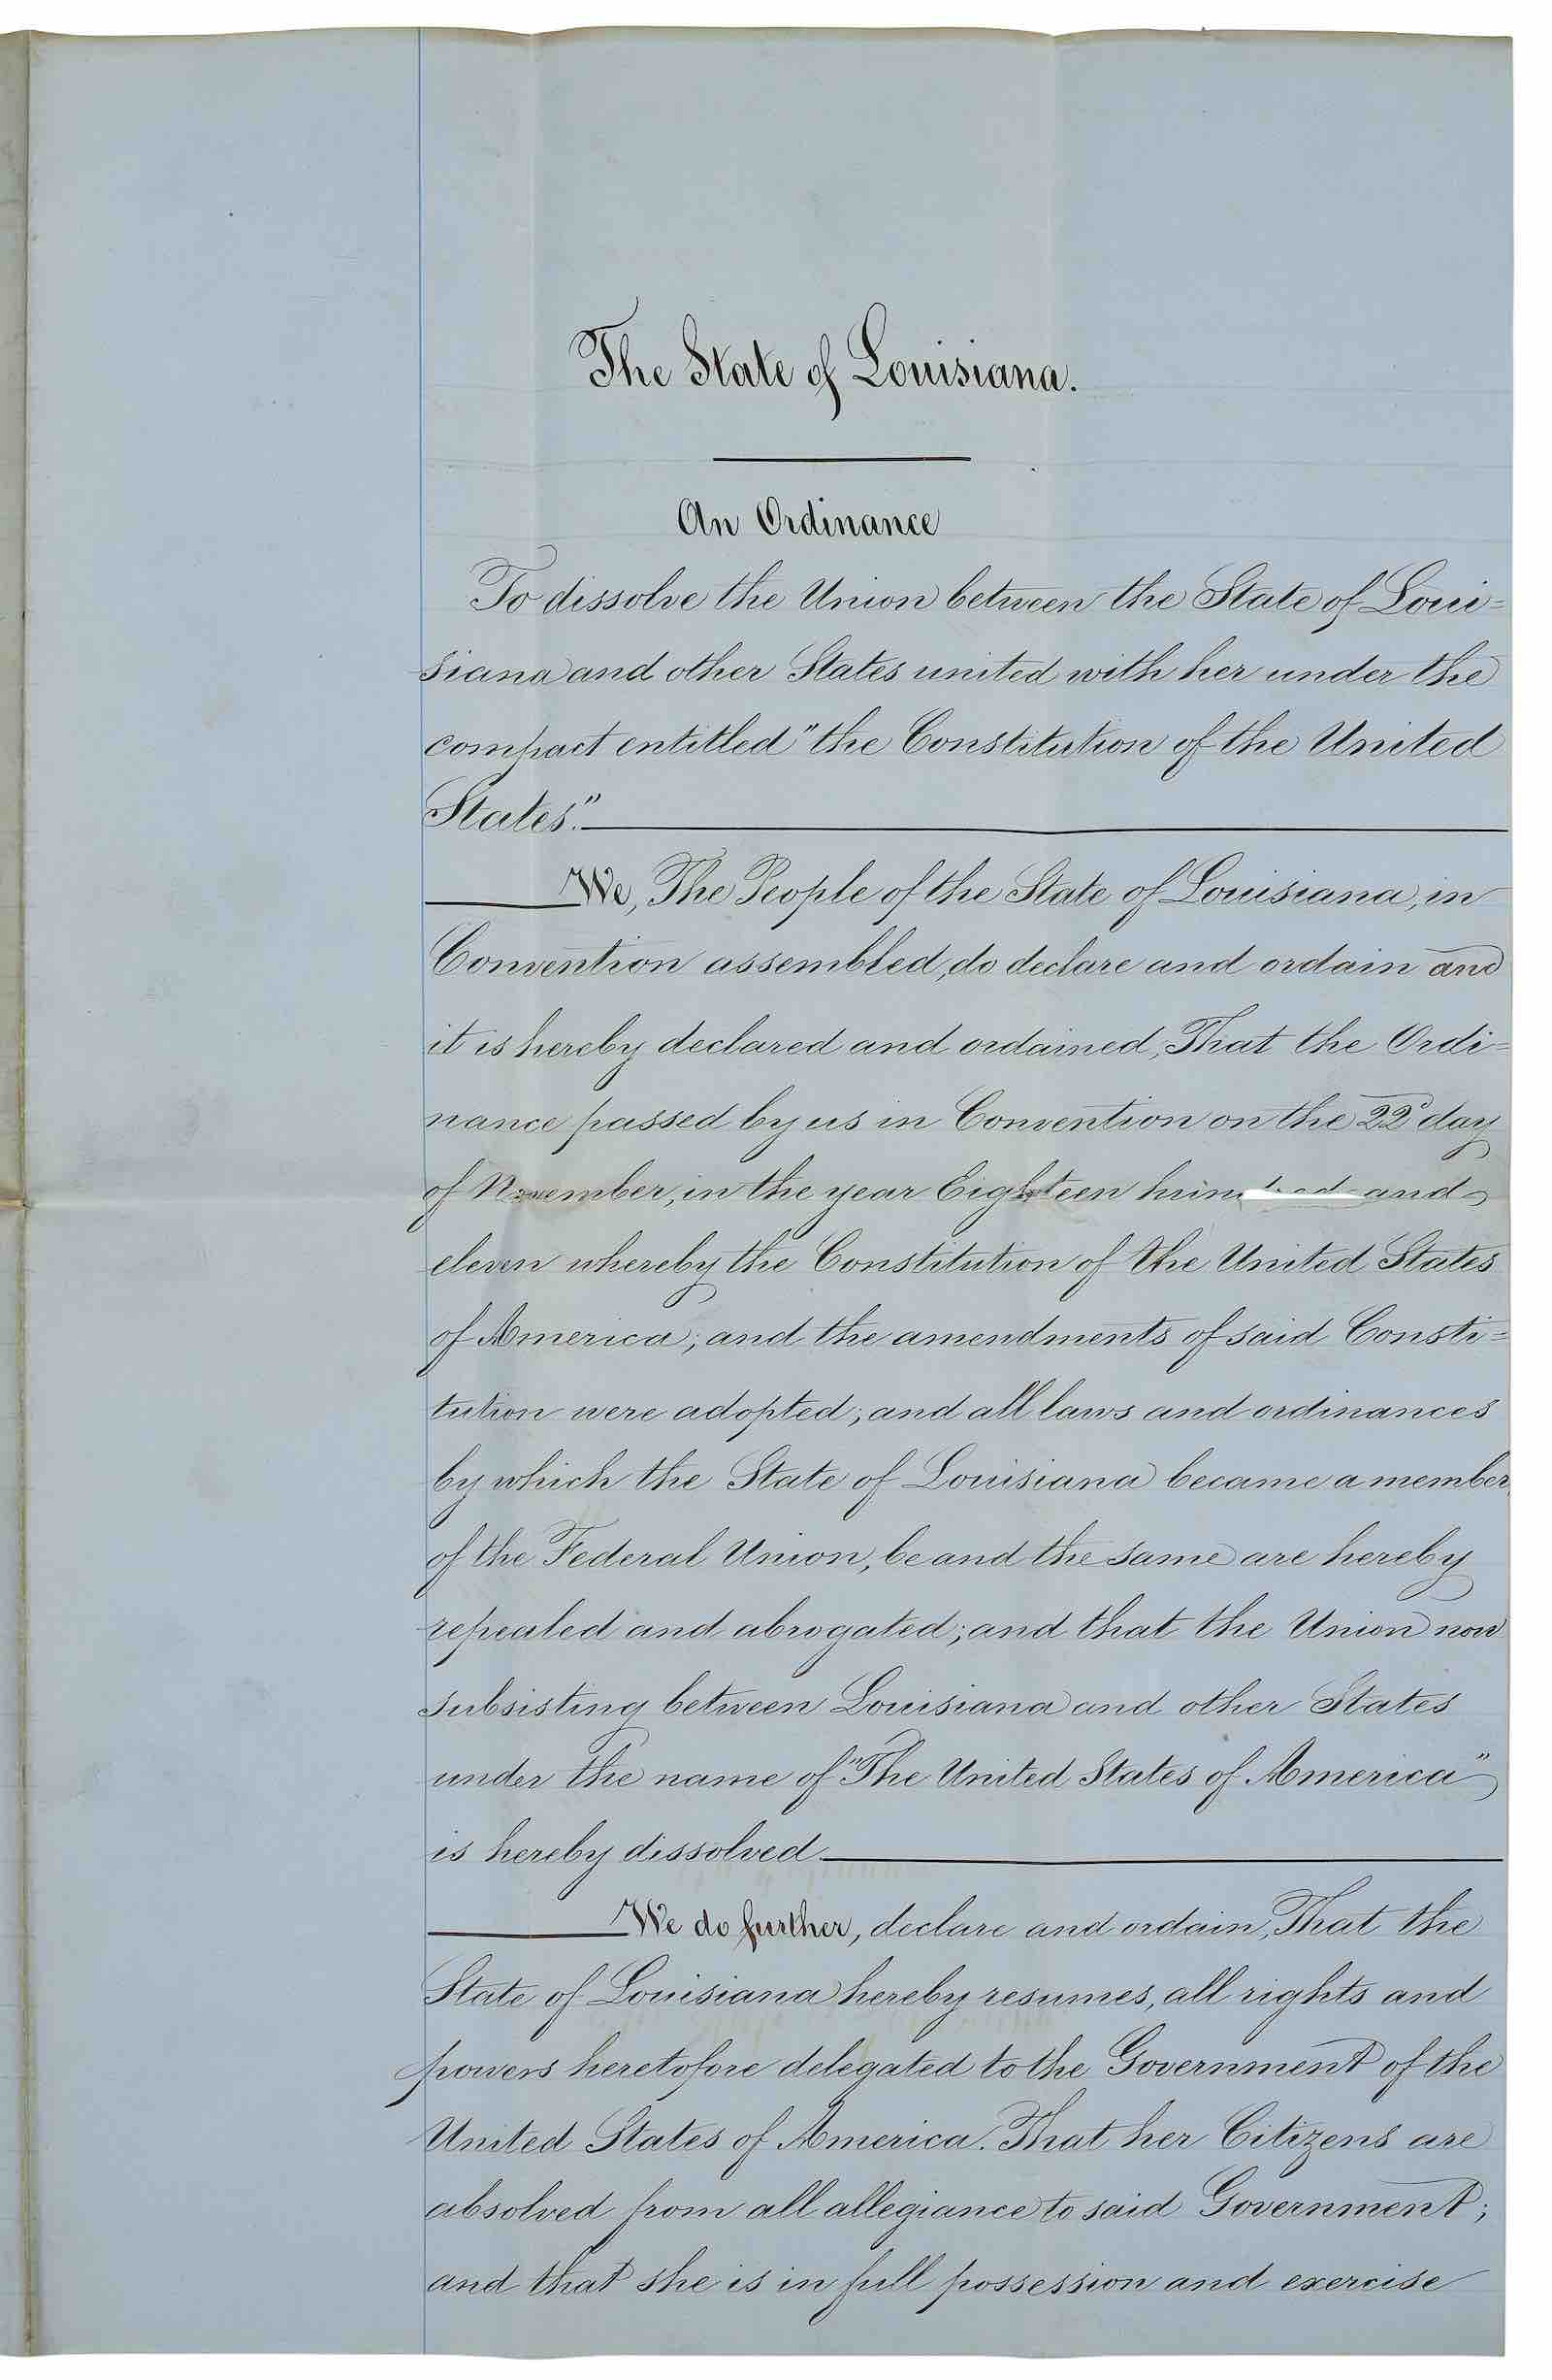 The State of Louisiana.
An Ordinance
To dissolve the Union between the State of Loui=
siana and other States united with her under the
compact entitled "the Constitution of the United
States."
We, The People of the State of Louisiana, in
Convention assembled, do declare and ordain and
it is hereby declared and ordained, That the Ordi=
nance passed by us in Convention on the 22d day
of November, in the year Eighteen hundred and
eleven whereby the Constitution of the United States
of America, and the amendments of said Consti=
tution were adopted; and all laws and ordinances
by which the State of Louisiana became a member
of the Federal Union, be and the same are hereby
repealed and abrogated; and that the Union now
subsisting between Louisiana and other States
under the name of "The United States of America"
is hereby dissolved
We do further, declare and ordain, That the
State of Louisiana hereby resumes, all rights and
powers heretofore delegated to the Government of the
United States of America. That her Citizens are
absolved from all allegiance to said Government;
and that she is in full possession and exercise